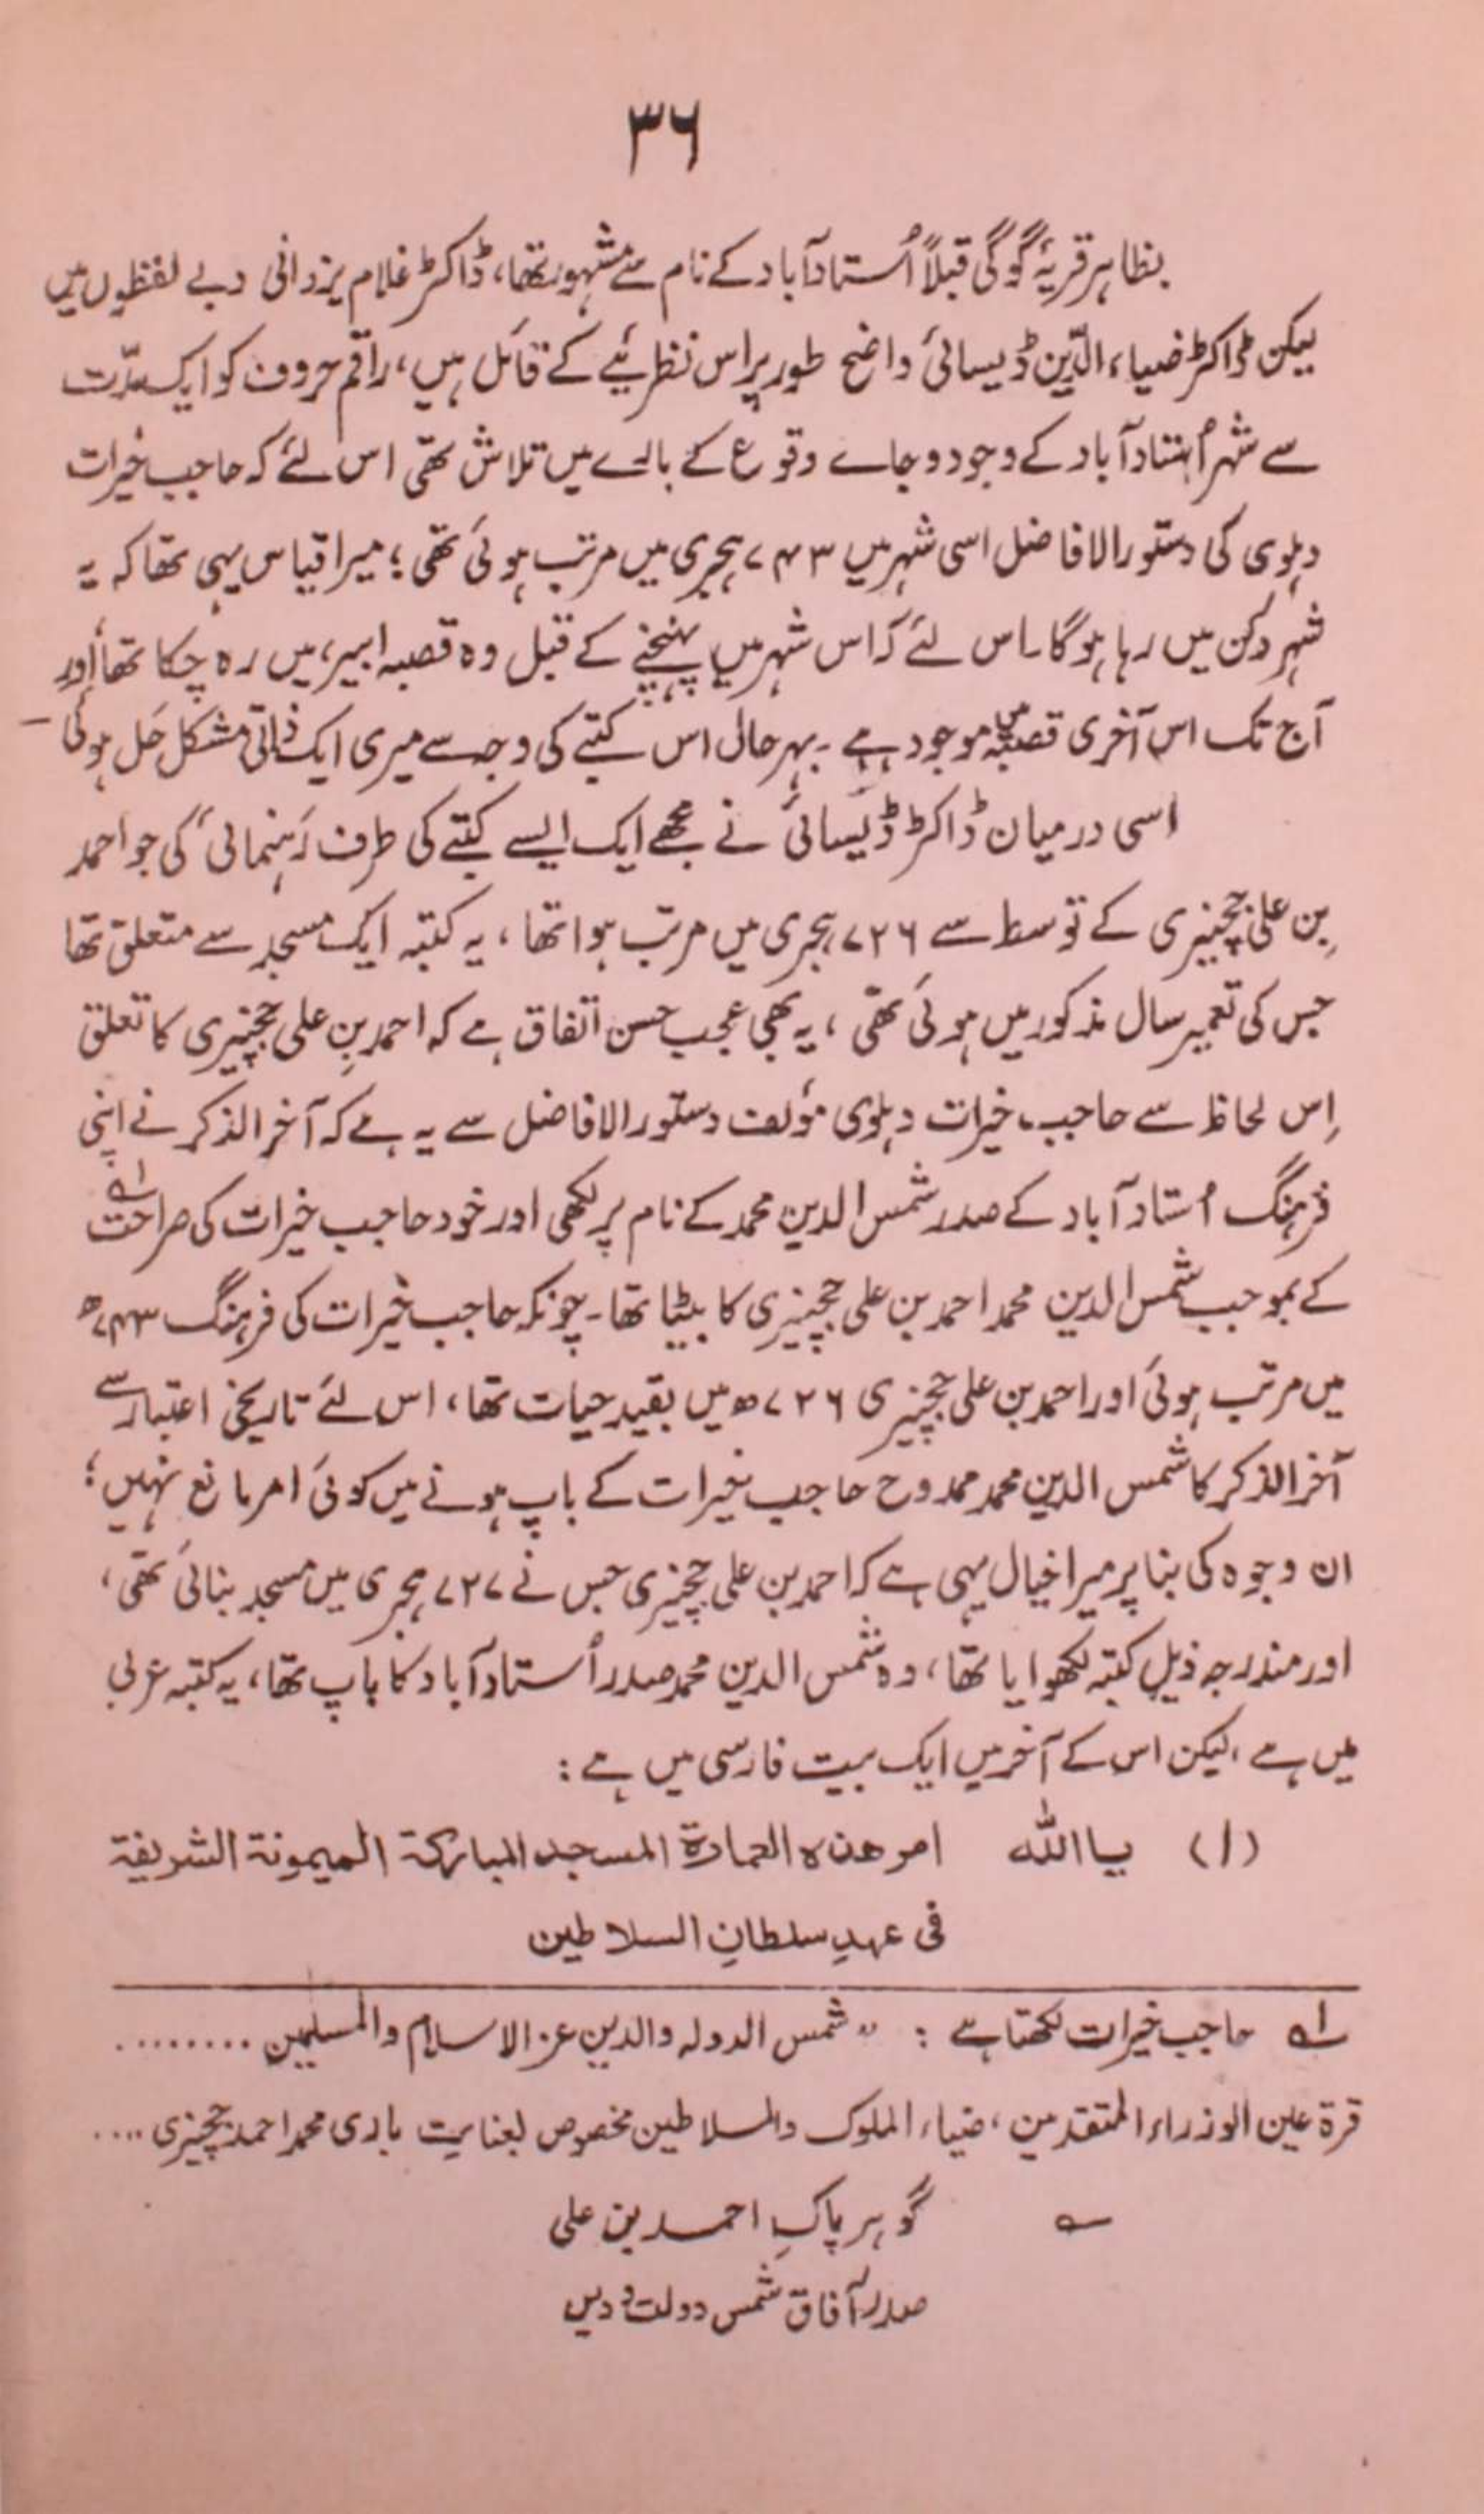 ۳۶
بظاہر قریۂ گوگی قبلاً اُستادآباد کے نام سے مشہور تھا، ڈاکٹر غلام یزدانی دبے لفظوں میں
لیکن ڈاکٹر ضیاء الدّین ڈیسائی واضح طور پر اس نظریئے کے قائل ہیں، راقم حروف کو ایک مدّت
سے شہر اُستادآباد کے وجود و جاے وقوع کے بارے میں تلاش تھی اس لئے کہ حاجب خیرات
دہلوی کی دستور الافاضل اسی شہر میں ۷۴۳ ہجری میں مرتب ہوئی تھی؛ میرا قیاس یہی تھا کہ یہ
شہر دکن میں رہا ہوگا۔ اس لئے کہ اس شہر میں پہنچنے کے قبل وہ قصبہ ابیر، میں رہ چکا تھا اور
آج تک اس آخری قصبہ میں موجود ہے ۔ بہر حال اس کتبے کی وجہ سے میری ایک ذاتی مشکل حَل ہوئی –
اسی درمیان ڈاکٹر ڈیسائی نے مجھے ایک ایسے کتبے کی طرف رَہنمائی کی جو احمد
بِن علی جَجنیری کے توسط سے ۷۲۶ ہجری میں مرتب ہوا تھا، یہ کتبہ ایک مسجد سے متعلق تھا
جس کی تعمیر سال مذکور میں ہوئی تھی، یہ بھی عجب حسن اتفاق ہے کہ احمد بِن علی ججنیری کا تعلق
اِس لحاظ سے حاجب خیرات دہلوی مؤلف دستور الافاضل سے یہ ہے کہ آخر الذکر نے اپنی
فرہنگ اُستاد آباد کے صدر شمس الدین محمد کے نام پر لکھی اور خود حاجب خیرات کی صراحت لہ
کے بموجب شمس الدین محمد احمد بن علی ججنیری کا بیٹا تھا۔ چونکہ حاجب خیرات کی فرہنگ ۷۴۳ھ
میں مرتب ہوئی اور احمد بن علی ججنیری ۷۲۶ھ میں بقید حیات تھا، اس لئے تاریخی اعتبار سے
آخر الذکر کا شمس الدین محمد ممدوح حاجب خیرات کے باپ ہونے میں کوئی امر مانع نہیں؛
ان وجوہ کی بنا پر میرا خیال یہی ہے کہ احمد بن علی ججنیری جس نے ۷۲۷ ہجری میں مسجد بنائی تھی،
اور مندرجہ ذیل کتبہ لکھوایا تھا، وہ شمس الدین محمد صدر اُستادآباد کا باپ تھا، یہ کتبہ عربی
میں ہے، لیکن اس کے آخر میں ایک بیت فارسی میں ہے:
(۱) یا اللّٰہ امر ھذہ العمارة المسجد المبارکة المیمونة الشریفة
فی عہدِ سلطانِ السلاطین
لہ حاجب خیرات لکھتا ہے : "شمس الدولہ والدین عز الاسلام والمسلمین ........
قرة عین الوزراء المتقدمین، ضیاء الملوک والسلاطین مخصوص بعنایت باری محمد احمد ججنیری ....
؎ گوہر پاکِ احمد بن علی
صدر آفاق شمس دولت و دیں